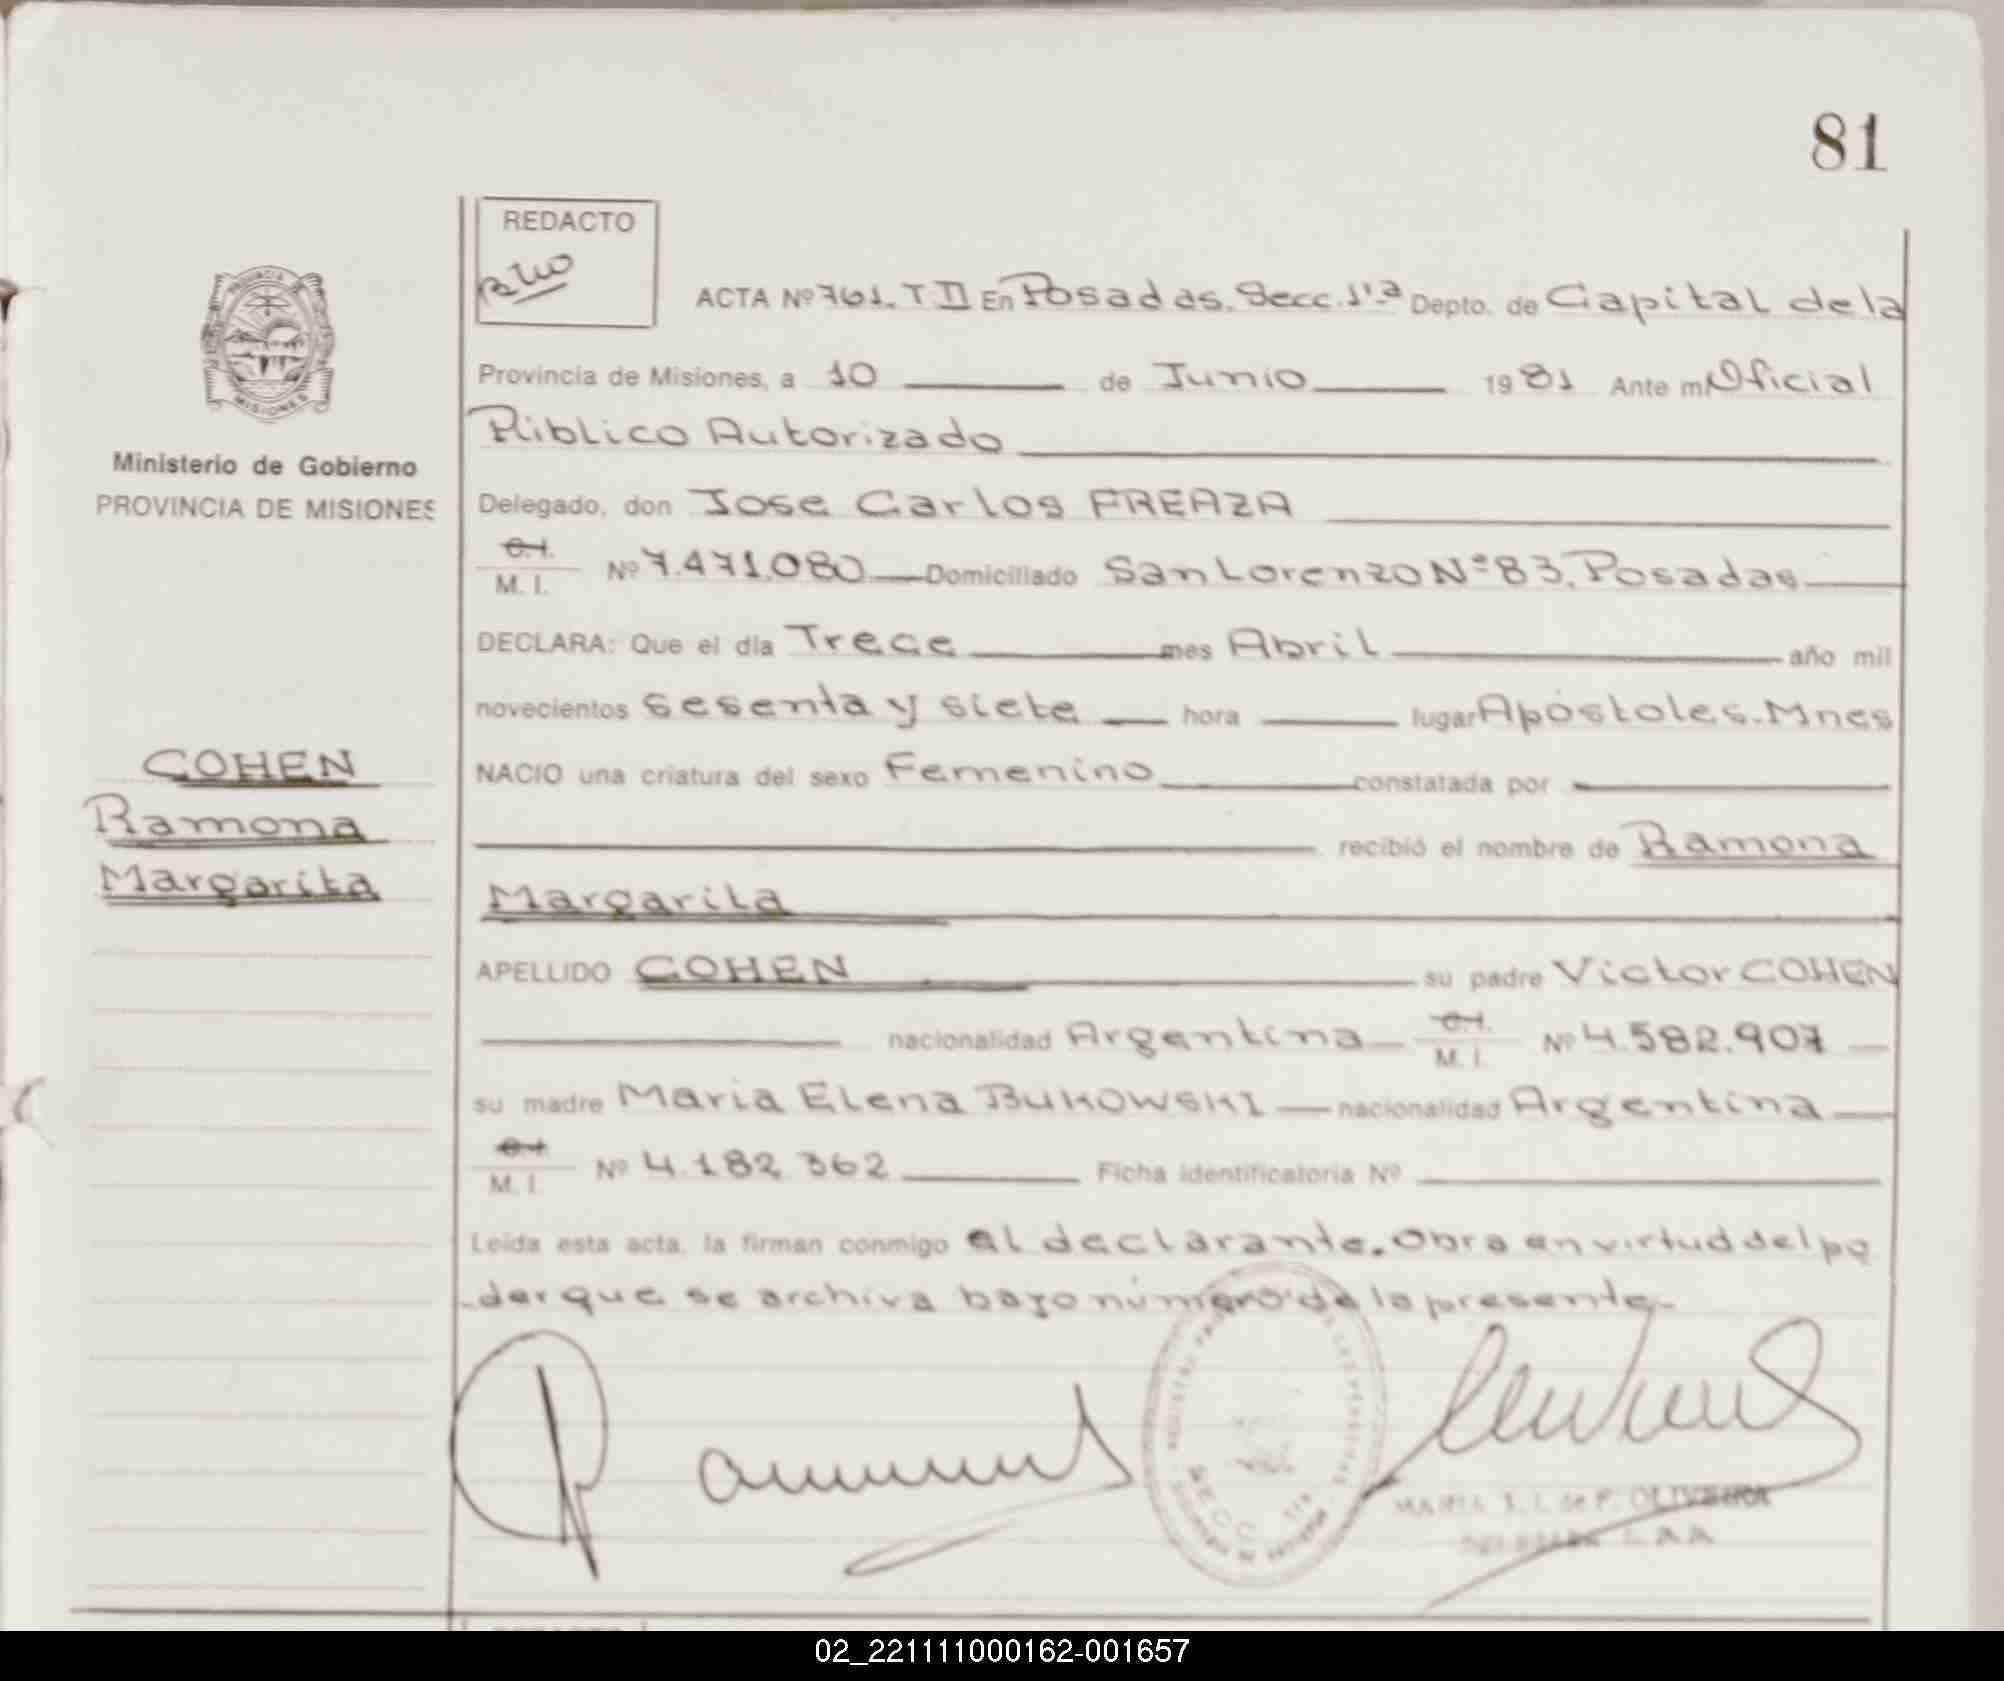 81
REDACTO
ACTA Nº 761. T II En Posadas. Secc. 1ª Depto. de Capital de la
Provincia de Misiones, a 10 de Junio 1981 Ante mi Oficial
Público Autorizado
Ministerio de Gobierno
PROVINCIA DE MISIONES
MISIONES
Delegado, don Jose Carlos FREAZA
C.I.
M. I. Nº 7.471.080 Domiciliado San Lorenzo Nº 83. Posadas
DECLARA: Que el día Trece mes Abril año mil
novecientos sesenta y siete hora lugar Apóstoles. Mnes
COHEN
Ramona
Margarita
NACIO una criatura del sexo Femenino constatada por
recibió el nombre de Ramona
Margarita
APELLIDO COHEN su padre Victor COHEN
nacionalidad Argentina C.I. M. I. Nº 4.582.907
su madre Maria Elena BUKOWSKI nacionalidad Argentina
C.I.
M. I. Nº 4.182 362 Ficha identificatoria Nº
Leída esta acta, la firman conmigo el declarante. Obra en virtud del po
-der que se archiva bajo número de la presente.-
SECC. 1ra
MARIA I. de P. OLIVEIRA
02_221111000162-001657